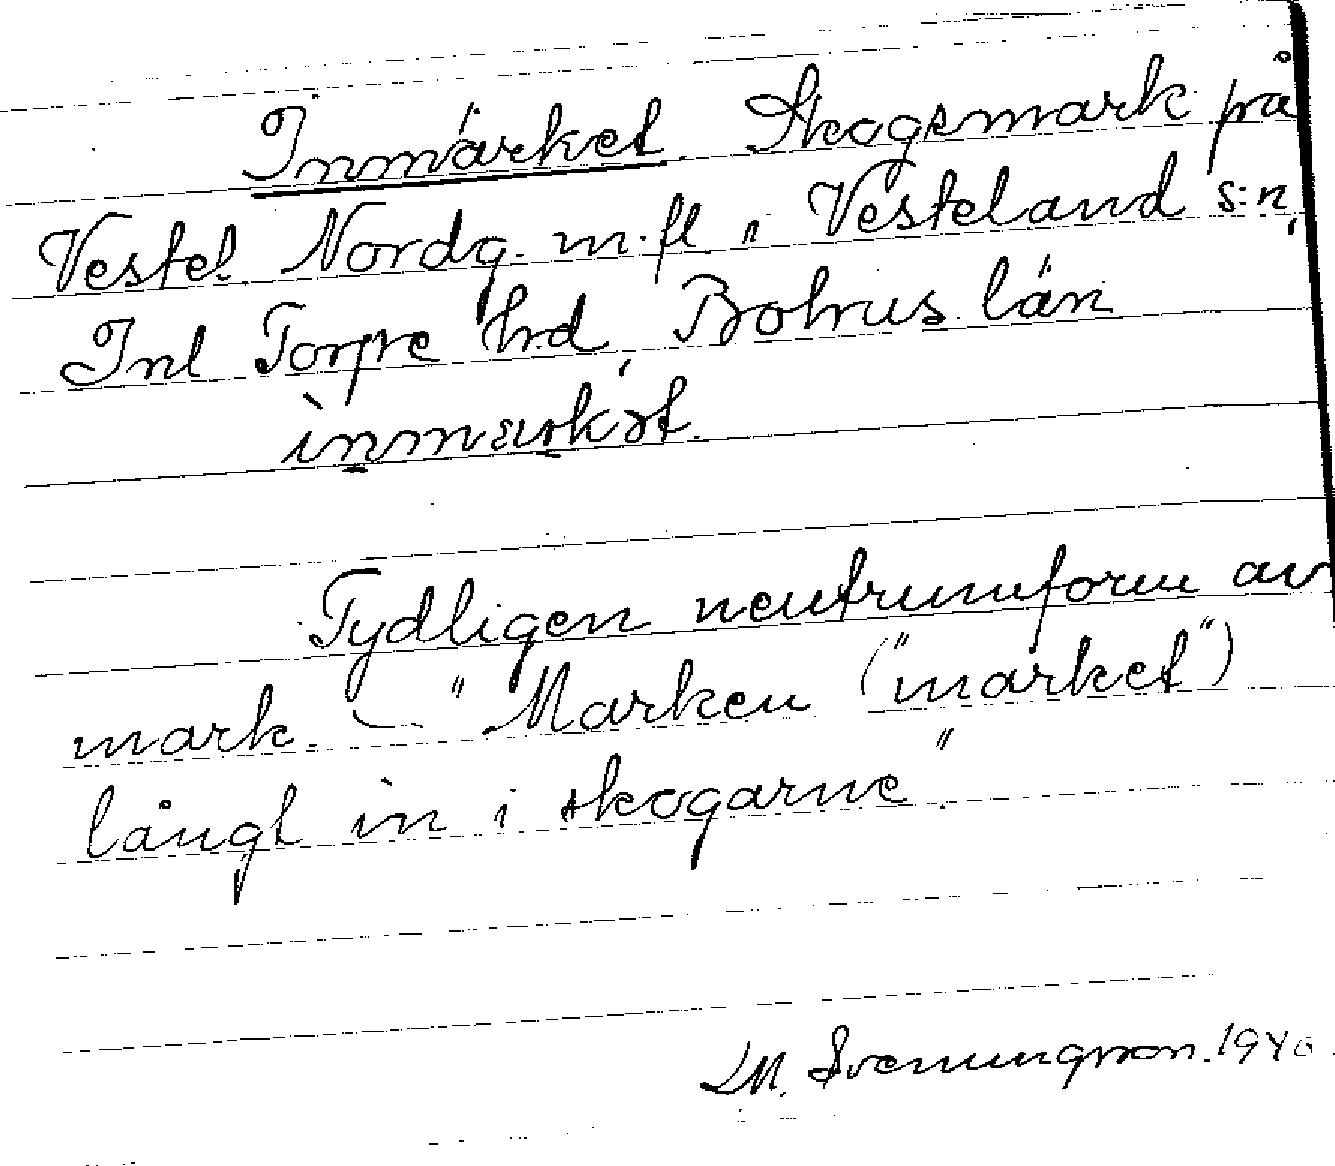 Inmarket. Skogsmark på
Vestel. Nordg. m. fl i Vesteland s:n,
Inl Torpe hrd, Bohus län
ìnmarkət.
Tydligen neutrumform av
mark. – "Marken ("market")
långt in i skogarne".
LM. Svenungsson. 1940.